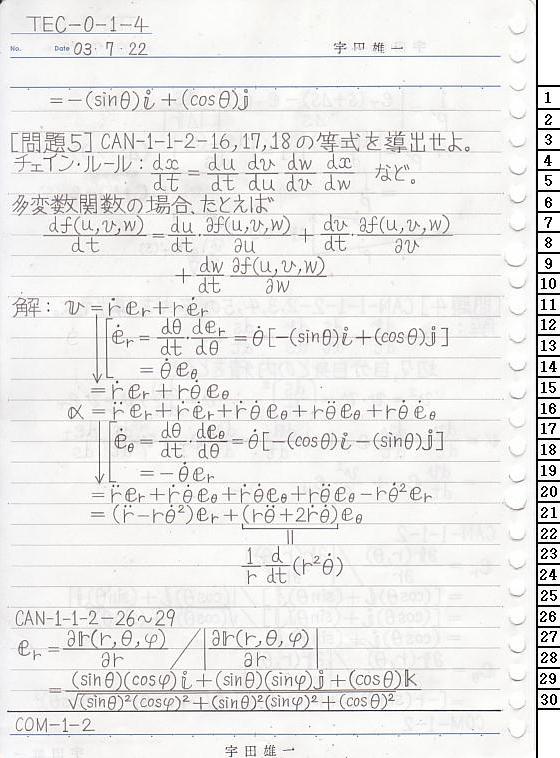 TEC-0-1-4
No. Date 03・7・22 宇田雄一
= -(sinθ)i + (cosθ)j
[問題5] CAN-1-1-2-16,17,18の等式を導出せよ。
チェイン・ルール: dx/dt = du/dt dv/du dw/dv dx/dw など。
多変数関数の場合、たとえば
df(u,v,w)/dt = du/dt・∂f(u,v,w)/∂u + dv/dt・∂f(u,v,w)/∂v
+ dw/dt ∂f(u,v,w)/∂w
解: v = ṙe_r + rė_r
[ė_r = dθ/dt・de_r/dθ = θ̇[-(sinθ)i + (cosθ)j]
= θ̇e_θ
= ṙe_r + rθ̇e_θ
α = r̈e_r + ṙė_r + ṙθ̇e_θ + rθ̈e_θ + rθ̇ė_θ
[ė_θ = dθ/dt・de_θ/dθ = θ̇[-(cosθ)i - (sinθ)j]
= -θ̇e_r
= r̈e_r + ṙθ̇e_θ + ṙθ̇e_θ + rθ̈e_θ - rθ̇²e_r
= (r̈ - rθ̇²)e_r + (rθ̈ + 2ṙθ̇)e_θ
||
1/r d/dt(r²θ̇)
CAN-1-1-2-26〜29
e_r = ∂r(r,θ,φ)/∂r / |∂r(r,θ,φ)/∂r|
= (sinθ)(cosφ)i + (sinθ)(sinφ)j + (cosθ)k / √(sinθ)²(cosφ)² + (sinθ)²(sinφ)² + (cosθ)²
COM-1-2
宇田雄一
1
2
3
4
5
6
7
8
9
10
11
12
13
14
15
16
17
18
19
20
21
22
23
24
25
26
27
28
29
30